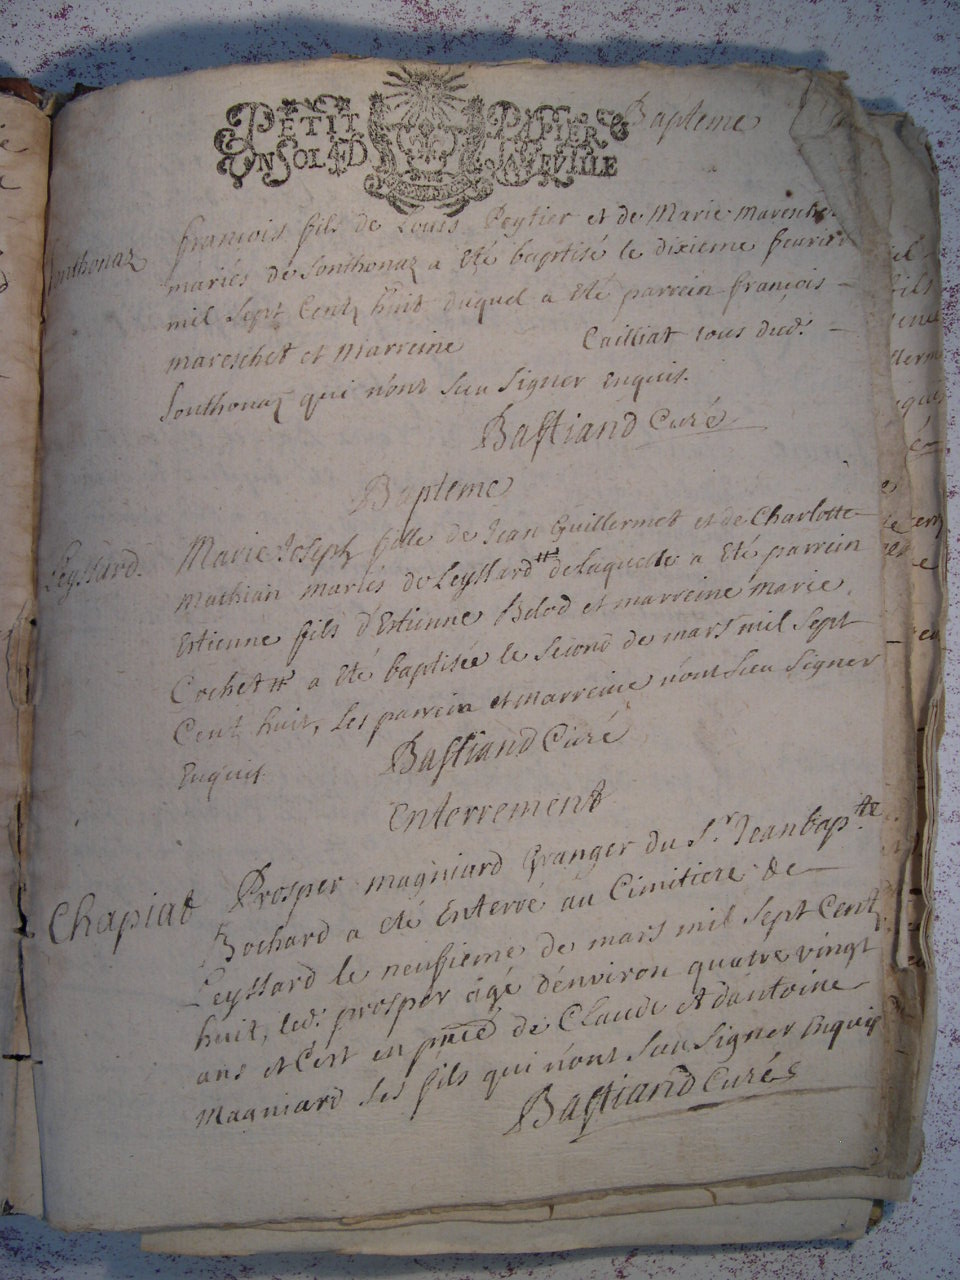 PETIT PAPIER
UN SOL 4 D LA FEUILLE
Bapteme
Sonthonaz
francois fils de Louis Peytier et de Marie mareschet
mariés de Sonthonaz a Eté baptisé le dixieme feuvrier
mil sept Centz huit duquel a Eté parrein françois
mareschet et Marreine Cailliat tous dud.
Sonthonaz qui n'ont sceu signer enquis.
Bastiand Curé
Bapteme
Leyssard.
Marie Joseph fille de Jean Guillermet et de Charlotte
Mathian mariés de Leyssard de Laquelle a Eté parrein
Estienne fils d'Estienne Belod et marreine marie
Cochet a Eté baptisée le second de mars mil sept
Centz huit, Les parrein et marreine n'ont sceu signer
Enquis
Bastiand Curé
Enterrement
Chapiat
Prosper magniard Granger du Sr. Jean bapte
Bochard a eté Enterré au Cimitiere de
Leyssard le neufieme de mars mil sept Centz
huit, led. prosper âgé d'environ quatre vingt
ans et C'est en pnce de Claude et d'antoine
Magniard ses fils qui n'ont sceu signer enquis
Bastiand Curé